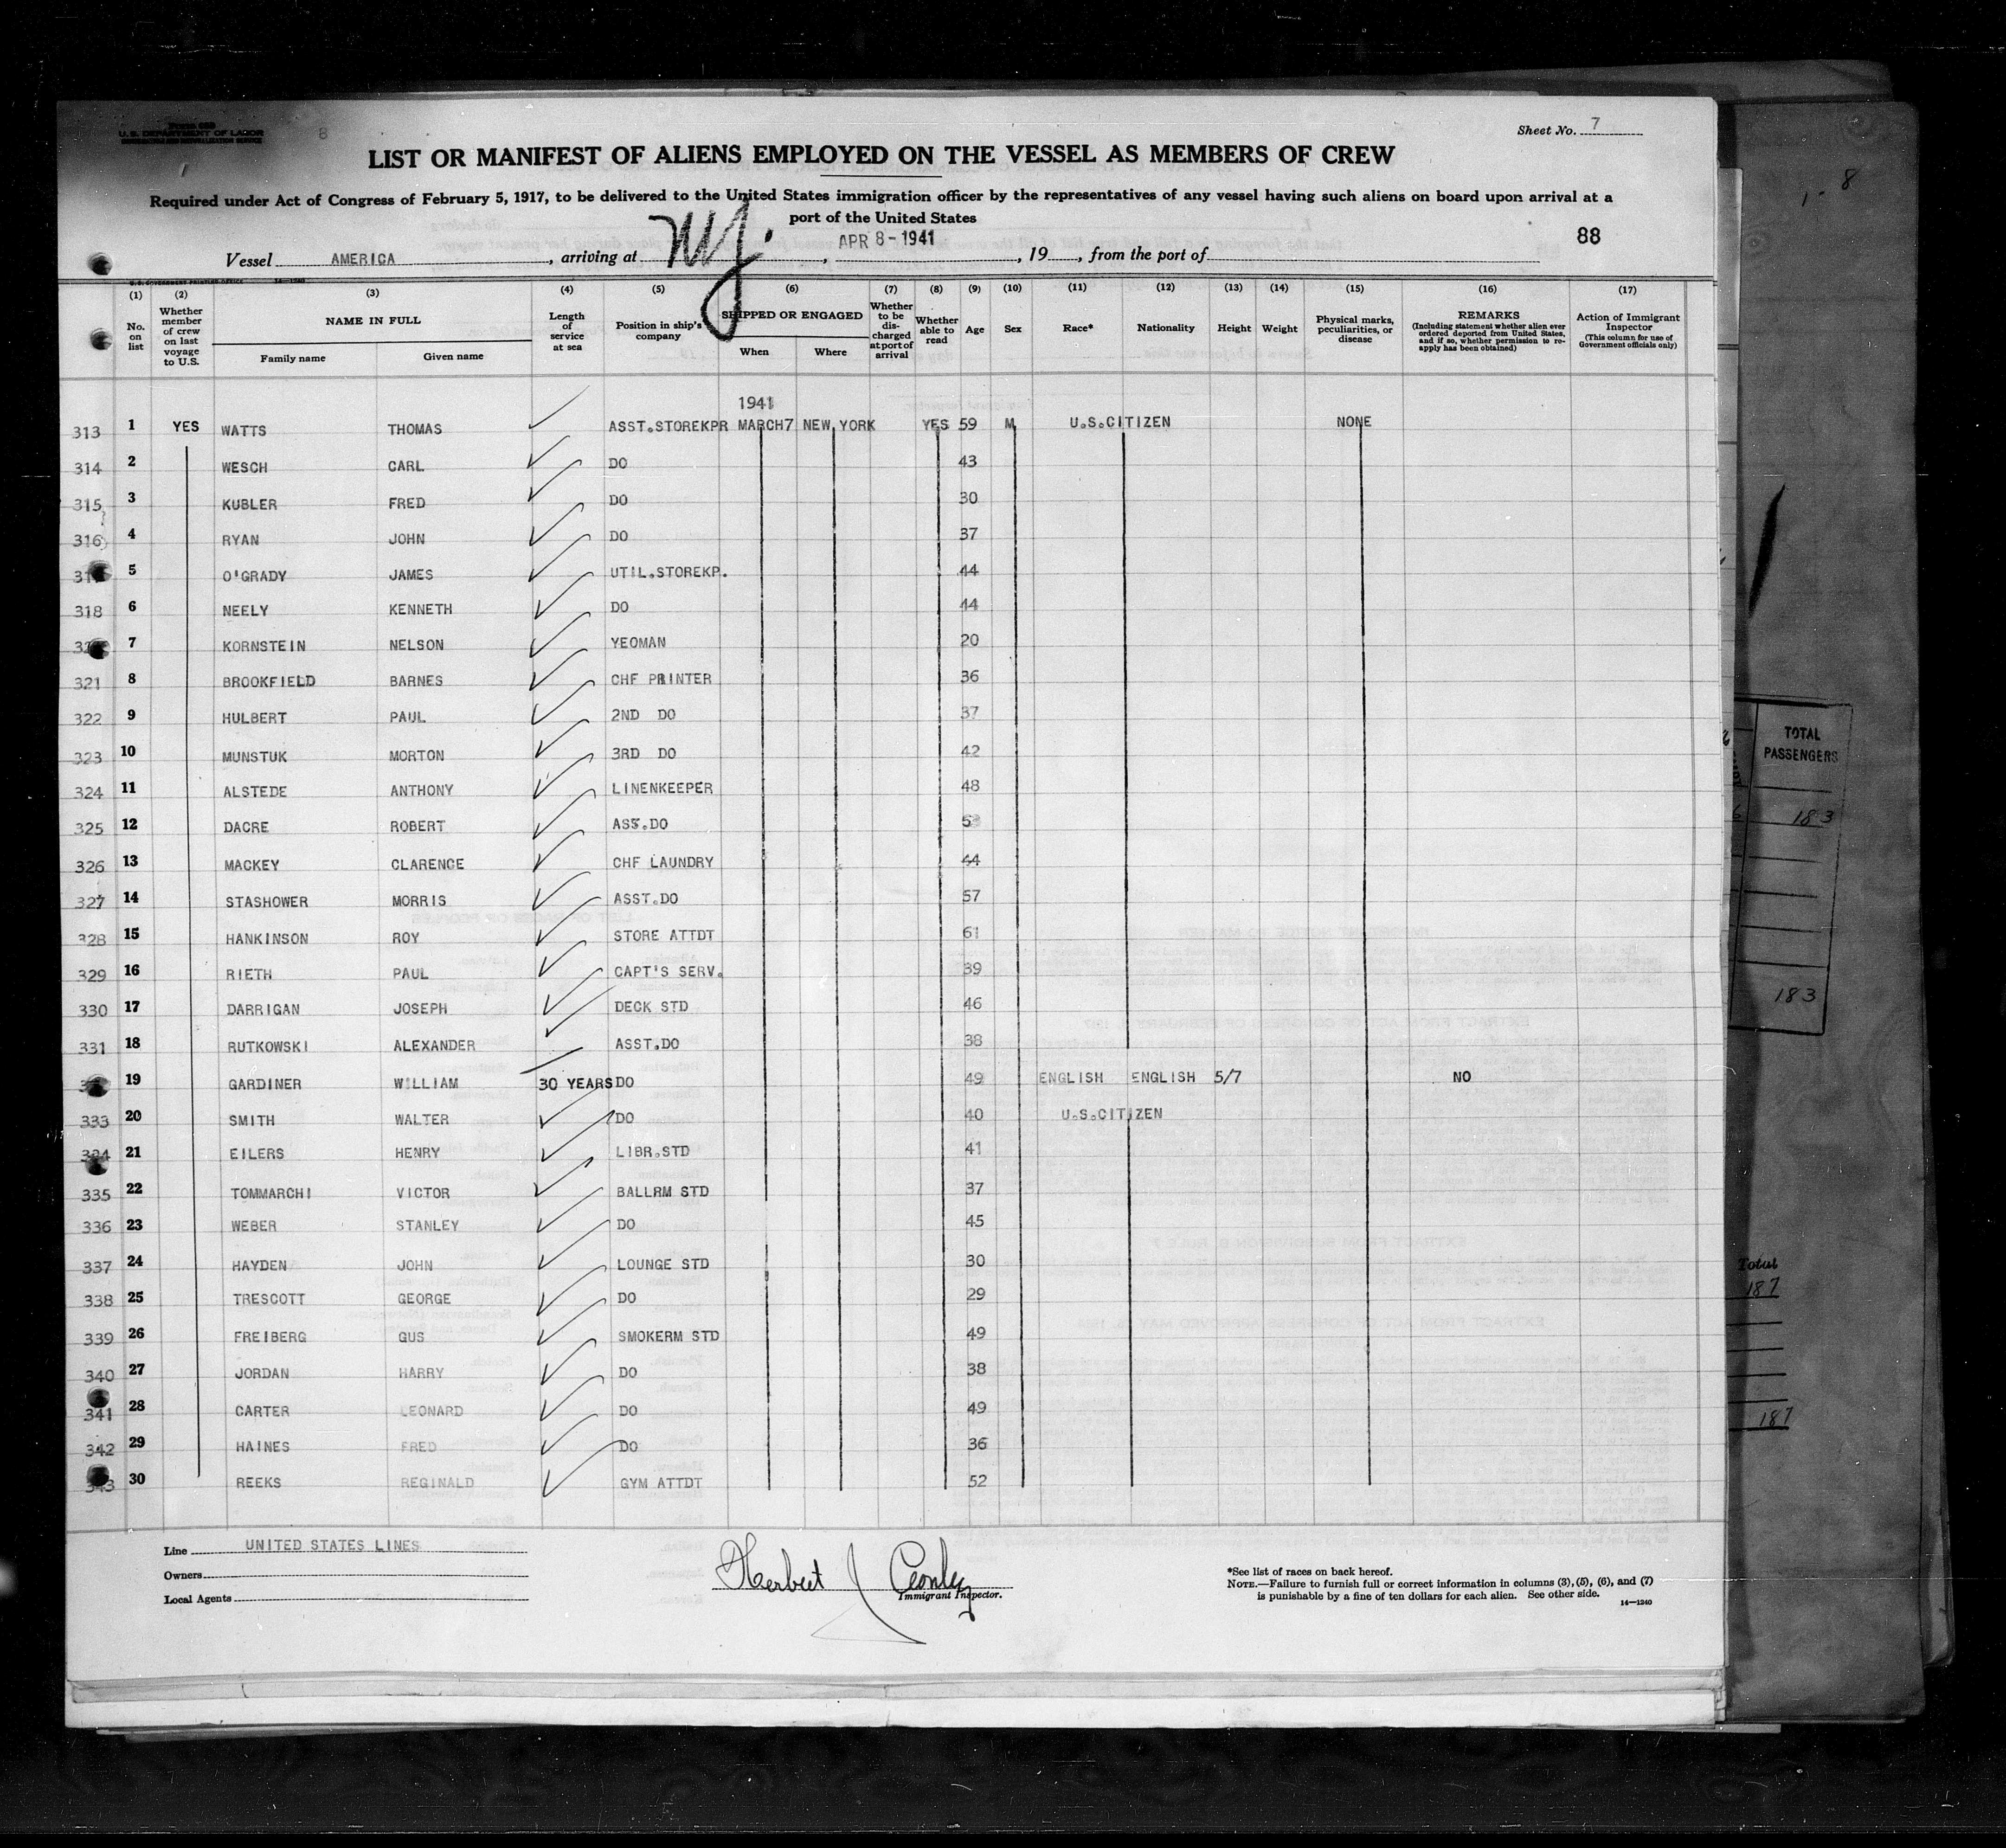 U. S. DEPARTMENT OF LABOR
8
Sheet No. 7
LIST OR MANIFEST OF ALIENS EMPLOYED ON THE VESSEL AS MEMBERS OF CREW
Required under Act of Congress of February 5, 1917, to be delivered to the United States immigration officer by the representatives of any vessel having such aliens on board upon arrival at a
port of the United States
88
Vessel AMERICA, arriving at NY., APR 8 - 1941, 19, from the port of
U. S. GOVERNMENT PRINTING OFFICE 14—1240
(1) (2) (3) (4) (5) (6) (7) (8) (9) (10) (11) (12) (13) (14) (15) (16) (17)
No. on list
Whether member of crew on last voyage to U.S.
NAME IN FULL
Family name Given name
Length of service at sea
Position in ship's company
SHIPPED OR ENGAGED
When Where
Whether to be discharged at port of arrival
Whether able to read
Age
Sex
Race*
Nationality
Height
Weight
Physical marks, peculiarities, or disease
REMARKS
(Including statement whether alien ever ordered deported from United States, and if so, whether permission to re-apply has been obtained)
Action of Immigrant Inspector
(This column for use of Government officials only)
1941
313 1 YES WATTS THOMAS ASST.STOREKPR MARCH7 NEW YORK YES 59 M U.S.CITIZEN NONE
314 2 WESCH CARL DO 43
315 3 KUBLER FRED DO 30
316 4 RYAN JOHN DO 37
5 O'GRADY JAMES UTIL.STOREKP. 44
318 6 NEELY KENNETH DO 44
7 KORNSTEIN NELSON YEOMAN 20
321 8 BROOKFIELD BARNES CHF PRINTER 36
322 9 HULBERT PAUL 2ND DO 37
323 10 MUNSTUK MORTON 3RD DO 42
324 11 ALSTEDE ANTHONY LINENKEEPER 48
325 12 DACRE ROBERT DO
326 13 MACKEY CLARENCE CHF LAUNDRY 44
327 14 STASHOWER MORRIS ASST.DO 57
328 15 HANKINSON ROY STORE ATTDT 61
329 16 RIETH PAUL CAPT'S SERV. 39
330 17 DARRIGAN JOSEPH DECK STD 46
331 18 RUTKOWSKI ALEXANDER ASST.DO 38
19 GARDINER WILLIAM 30 YEARS DO 49 ENGLISH ENGLISH 5/7 NO
333 20 SMITH WALTER DO 40 U.S.CITIZEN
334 21 EILERS HENRY LIBR.STD 41
335 22 TOMMARCHI VICTOR BALLRM STD 37
336 23 WEBER STANLEY DO 45
337 24 HAYDEN JOHN LOUNGE STD 30
338 25 TRESCOTT GEORGE DO 29
339 26 FREIBERG GUS SMOKERM STD 49
340 27 JORDAN HARRY DO 38
341 28 CARTER LEONARD DO 49
342 29 HAINES FRED DO 36
343 30 REEKS REGINALD GYM ATTDT 52
Line UNITED STATES LINES
Owners
Local Agents
Herbert J
Immigrant Inspector.
*See list of races on back hereof.
NOTE.—Failure to furnish full or correct information in columns (3), (5), (6), and (7)
is punishable by a fine of ten dollars for each alien. See other side.
14—1240
8
TOTAL
PASSENGERS
183
183
Total
187
187